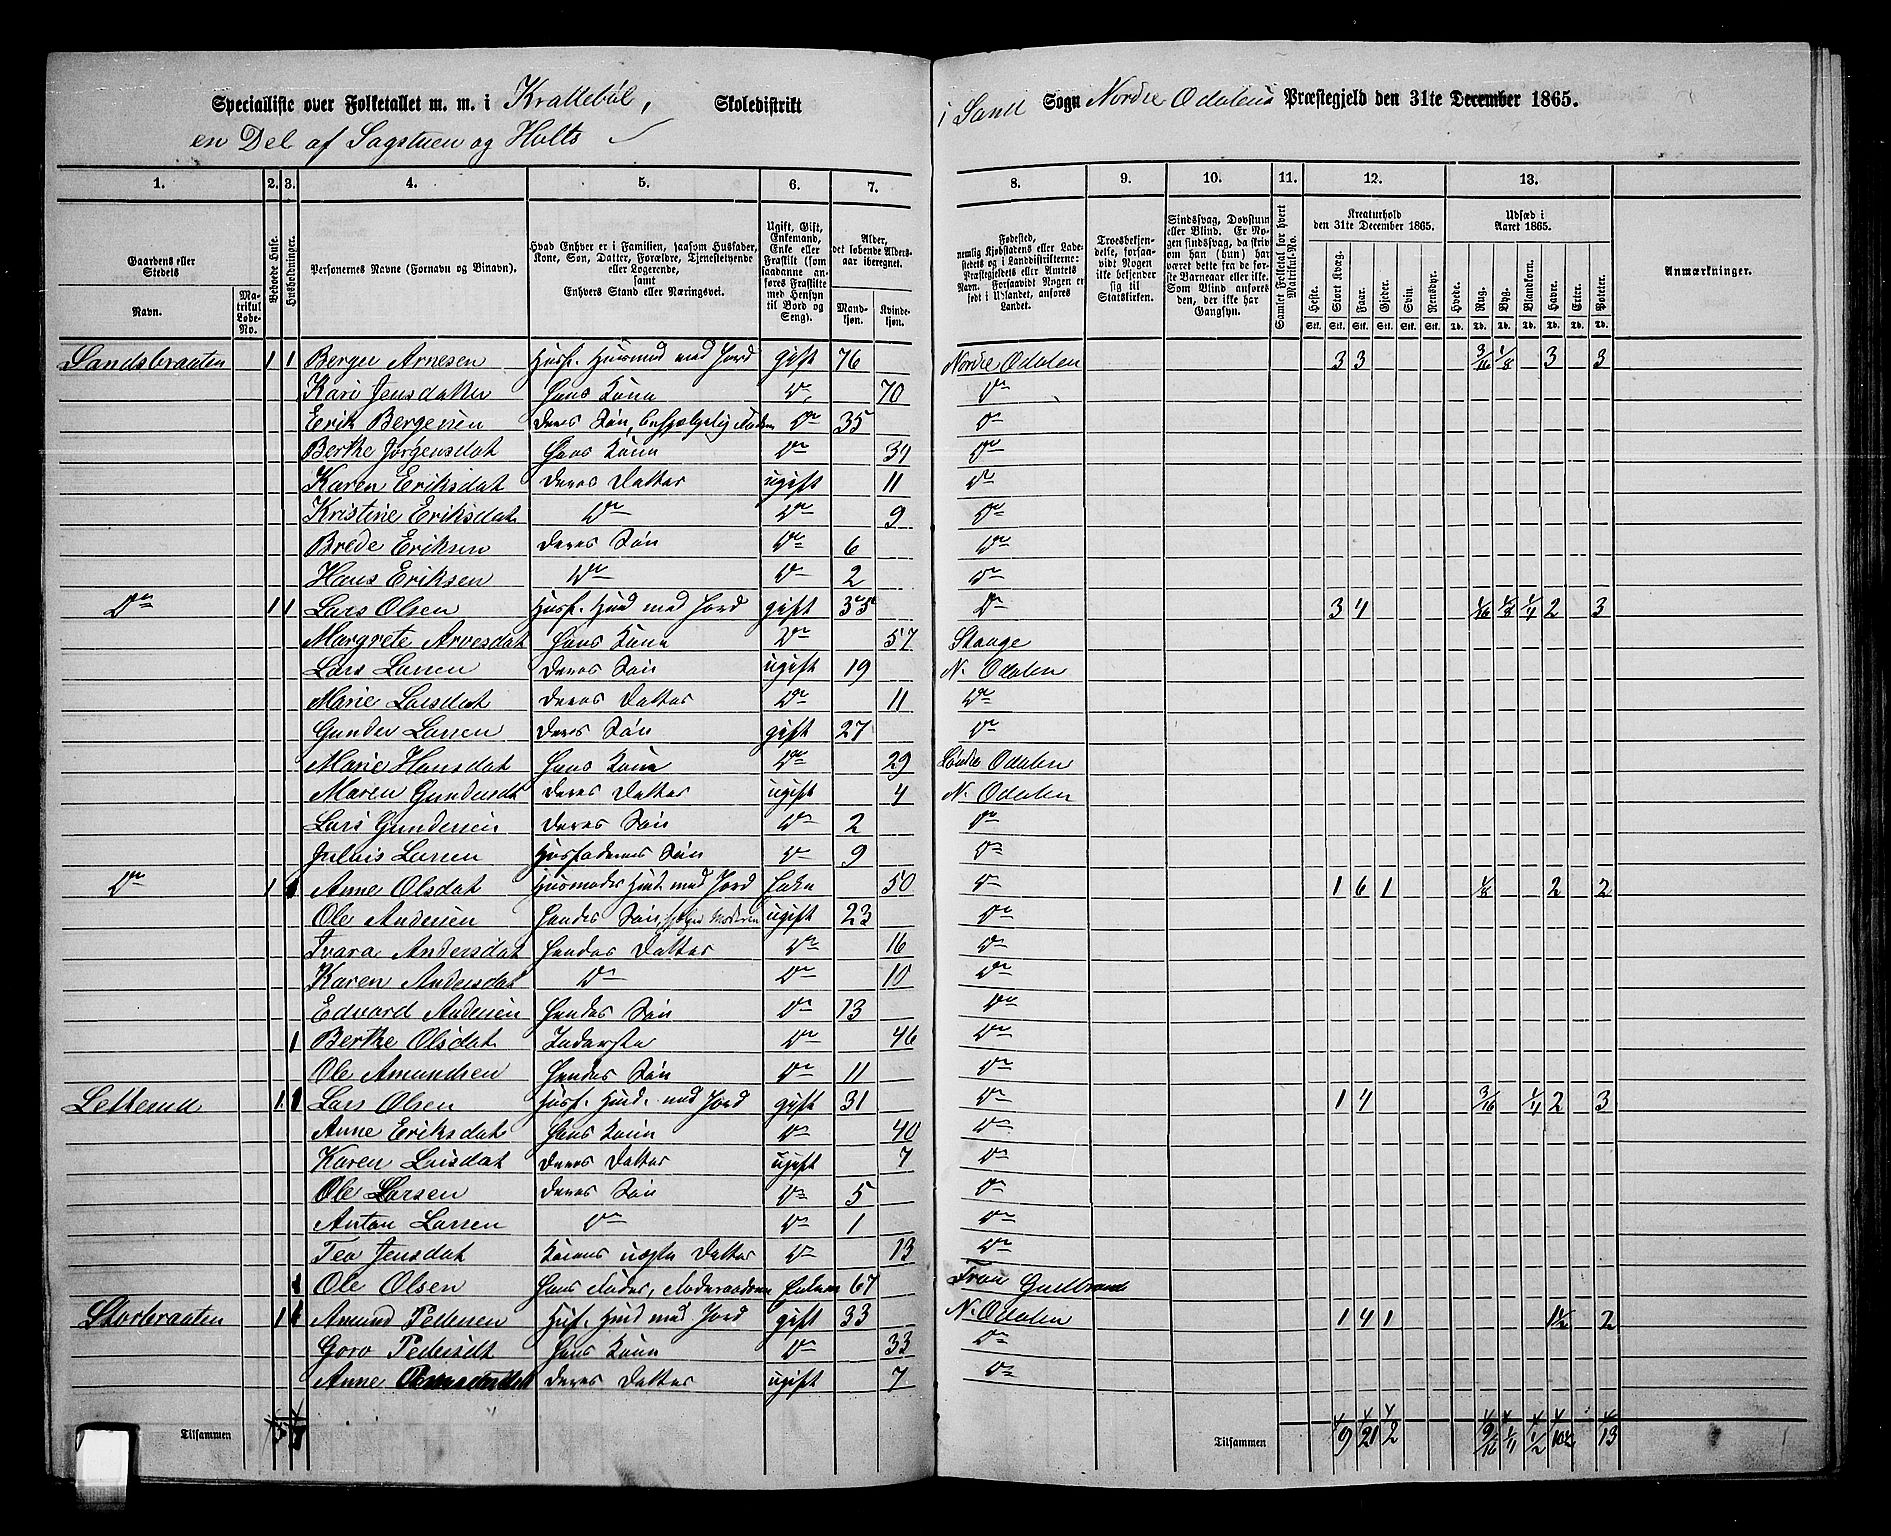 Specialliste over Folketallet m. m. i Krattebøl, Skoledistrikt i Sand Sogn Nordre Odalens Præstegjeld den 31te December 1865.
en Del af Sagstuen og Holts
1. 2. 3. 4. 5. 6. 7. 8. 9. 10. 11. 12. 13.
Gaardens eller Stedets
Navn.
Matrikul Løbe-No.
Beboede Huse.
Husholdninger.
Personernes Navne (Fornavn og Binavn).
Hvad Enhver er i Familien, saasom Husfader, Kone, Søn, Datter, Forældre, Tjenestetyende eller Logerende, samt Enhvers Stand eller Næringsvei.
Ugift, Gift, Enkemand, Enke eller Fraskilt (som saadanne anføres Fraskilte med Hensyn til Bord og Seng).
Alder, det løbende Alders-aar iberegnet.
Mandkjøn. Kvindekjøn.
Fødested, nemlig Kjøbstadens eller Ladestedets eller i Landdistrikterne: Præstegjeldets eller Amtets Navn. Forsaavidt Nogen er født i Udlandet, anføres Landet.
Troesbekjendelse, forsaavidt Nogen ikke bekjender sig til Statskirken.
Sindssvag, Døvstum eller Blind. Er Nogen sindssvag, da skrives om han (hun) har været det fra de første Barneaar eller ikke. Som Blind ansføres den, der ikke har Gangsyn.
Samlet Folketal for hvert Matrikul-No.
Kreaturhold den 31te December 1865.
Heste. Stort Kvæg. Faar. Gjeder. Svin. Rensdyr.
Udsæd i Aaret 1865.
Hvede. Rug. Byg. Blandkorn. Havre. Erter. Poteter.
Anmærkninger.
Sandsbraaten 1 1 Berger Arnesen Husf. Husmd med Jord gift 76 Nordre Odalen 3 3 3/16 1/8 3 3
Kari Jensdatter Hans Kone Do 70 Do
Erik Bergersen deres Søn, Do 35 Do
Berthe Jørgensdat Hans Kone Do 34 Do
Karen Eriksdat deres Datter ugift 11 Do
Kristine Eriksdat Do Do 9 Do
Brede Eriksen deres Søn Do 6 Do
Hans Eriksen Do Do 2 Do
Do 1 1 Lars Olsen Husf. Husmd med Jord gift 35 Do 3 4 1/16 1/8 1/4 2 3
Margrete Arnesdat Hans Kone Do 57 Stange
Lars Larsen deres Søn ugift 19 N. Odalen
Marie Larsdat deres Datter Do 11 Do
Gunder Larsen deres Søn gift 27 Do
Marie Hansdat Hans Kone Do 29 Søndre Odalen
Maren Gundersdt deres Datter ugift 4 N. Odalen
Lars Gundersen deres Søn Do 2 Do
Julius Larsen Husfaderens Søn Do 9 Do
Do 1 1 Anne Olsdat Husmoder Husmd med Jord Enke 50 Do 1 6 1 1/8 2 2
Ole Andersen Hendes Søn, hjælper Moderen ugift 23 Do
Andersdat Hendes Datter Do 16 Do
Karen Andersdat Do Do 10 Do
Edvard Andersen Hendes Søn Do 13 Do
1 Berthe Olsdat Inderste Do 46 Do
Ole Amundsen Hendes Søn Do 11 Do
Letterud 1 1 Lars Olsen Husf. Husmd. med Jord gift 31 Do 1 4 3/16 1/4 2 3
Anne Eriksdat Hans Kone Do 40 Do
Karen Larsdat deres Datter ugift 7 Do
Ole Larsen deres Søn Do 5 Do
Anton Larsen Do Do 1 Do
Tea Jensdat Konens uægte Datter Do 13 Do
1 Ole Olsen Hans Fader, Føderaadsm Enkem 67 Fron Gudbrand
Storbraaten 1 1 Amund Pedersen Husf. Husmd med Jord gift 33 N. Odalen 1 4 1 1½ 2
Goro Pedersdt Hans Kone Do 33 Do
Anne deres Datter ugift 7 Do
Tilsammen 5 7 Tilsammen 9 21 2 9/16 1/4 1/2 10½ 13